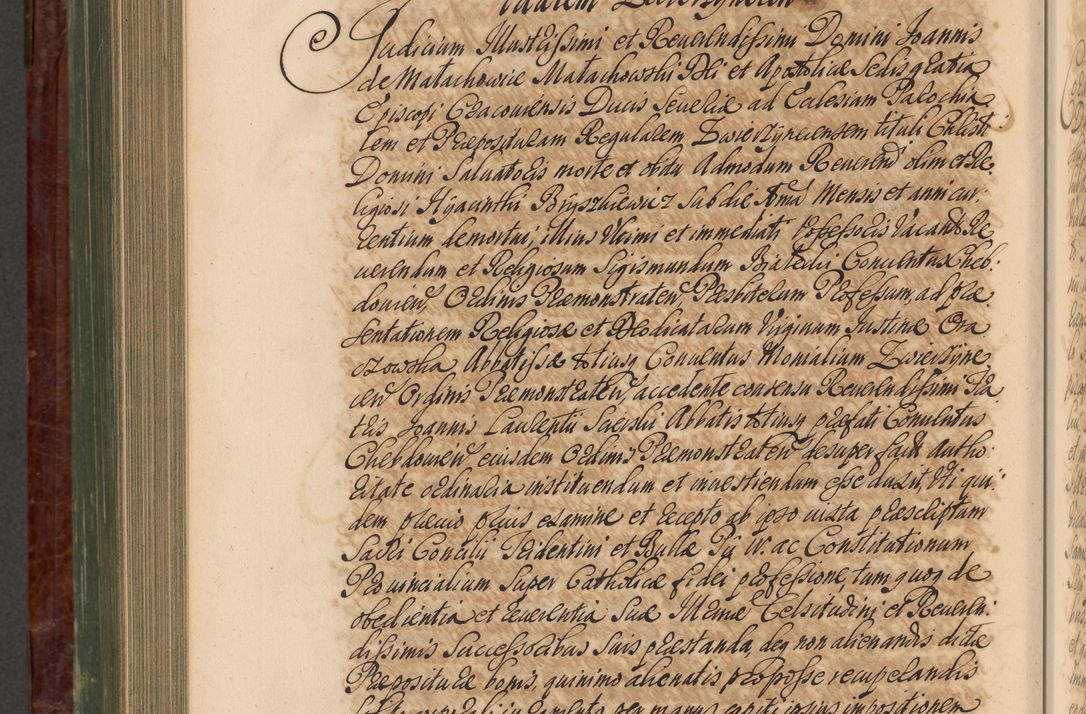 Judicium Illustrissimi et Reverendissimi Domini Joannis
de Małachowice Małachowski Dei et Apostolicæ Sedis gratia
Episcopi Cracoviensis Ducis Severiæ ad Ecclesiam Parochia
lem et Præposituram Regularem Zwierzyncensem tituli Christi
Domini Salvatoris morte et obitu Admodum Reverendi olim et Re
ligiosi Hyacinthi Bryszkiewicz sub die Mensis et anni cur
rentium demortui, illius Ultimi et immediati Possessoris Vacant Re
verendum et Religiosum Sigismundum Conventus Cheb
dovien Ordinis Præmonstraten, Præsbiterum Professum, ad præ
sentationem Religiosæ et Deo dicatarum Virginum Justinæ Ora
czowska Abbatissæ totiusq Conventus Monialium Zwierzyne
cen Ordinis Præmonstraten, accedente consensu Reverendissimi Fra
tris Joannis Laurentii Abbatis totiusq præfati Conventus
Chebdovien eiusdem Ordinis Præmonstraten desuper facto autho
ritate ordinaria instituendum et investiendum esse duxit, Uti qui
dem prævio prius examine et recepto ab ipso iuxta præscriptum
Sacri Concilii Tridentini et Bullæ Pii IV. ac Constitutionum
Provincialium super Catholicæ fidei professione, tam quoq de
obedientia et reverentia Suæ Celsitudini et Reveren
dissimis Successoribus suis præstanda, deq non alienandis dictæ
Præposituræ bonis, quinimo alienatis pro posse recuperandis
per manus capiti ipsius impositionem